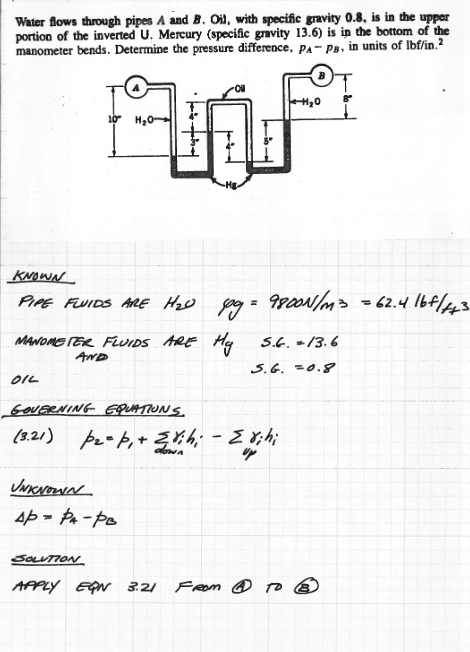 Water flows through pipes A and B. Oil, with specific gravity 0.8, is in the upper
portion of the inverted U. Mercury (specific gravity 13.6) is in the bottom of the
manometer bends. Determine the pressure difference, pA − pB, in units of lbf/in.²
A
B
Oil
H₂O
8"
10"
H₂O
4"
3"
4"
5"
Hg
KNOWN
PIPE FLUIDS ARE H₂O ρg = 9800N/m3 = 62.4 lbf/ft3
MANOMETER FLUIDS ARE Hg S.G. = 13.6
AND
S.G. = 0.8
OIL
GOVERNING EQUATIONS
(3.21) p₂ = p₁ + Σ γᵢhᵢ − Σ γᵢhᵢ
down up
UNKNOWN
Δp = pA − pB
SOLUTION
APPLY EQN 3.21 FROM Ⓐ TO Ⓑ